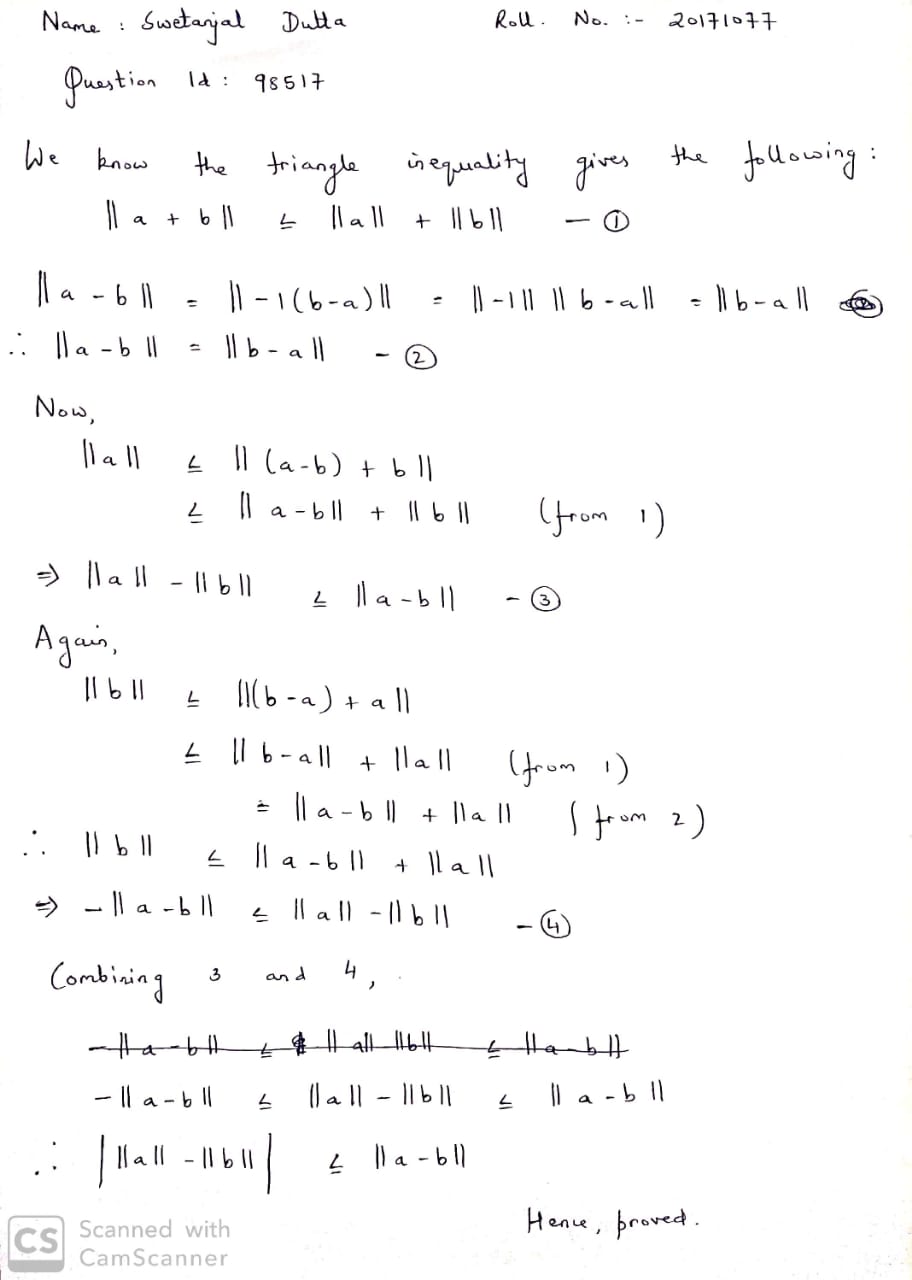 Name : Swetanjal Dutta Roll. No. :- 20171077
Question Id : 98517
We know the triangle inequality gives the following :
||a + b|| ≤ ||a|| + ||b|| — ①
||a - b|| = ||-1(b-a)|| = ||-1|| ||b-a|| = ||b-a||
∴ ||a-b|| = ||b-a|| - ②
Now,
||a|| ≤ ||(a-b) + b||
≤ ||a-b|| + ||b|| (from 1)
⇒ ||a|| - ||b|| ≤ ||a-b|| - ③
Again,
||b|| ≤ ||(b-a) + a||
≤ ||b-a|| + ||a|| (from 1)
= ||a-b|| + ||a|| (from 2)
∴ ||b|| ≤ ||a-b|| + ||a||
⇒ -||a-b|| ≤ ||a|| - ||b|| - ④
Combining 3 and 4,
-||a-b|| ≤ ||a|| ||b|| ≤ ||a-b||
-||a-b|| ≤ ||a|| - ||b|| ≤ ||a-b||
∴ | ||a|| - ||b|| | ≤ ||a-b||
Hence, proved.
CS Scanned with
CamScanner